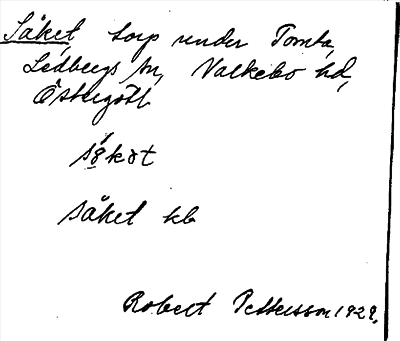 Såket torp under Tomta,
Ledbergs sn, Valkebo hd,
Östergötl.
såket kb
Robert Pettersson 1929.